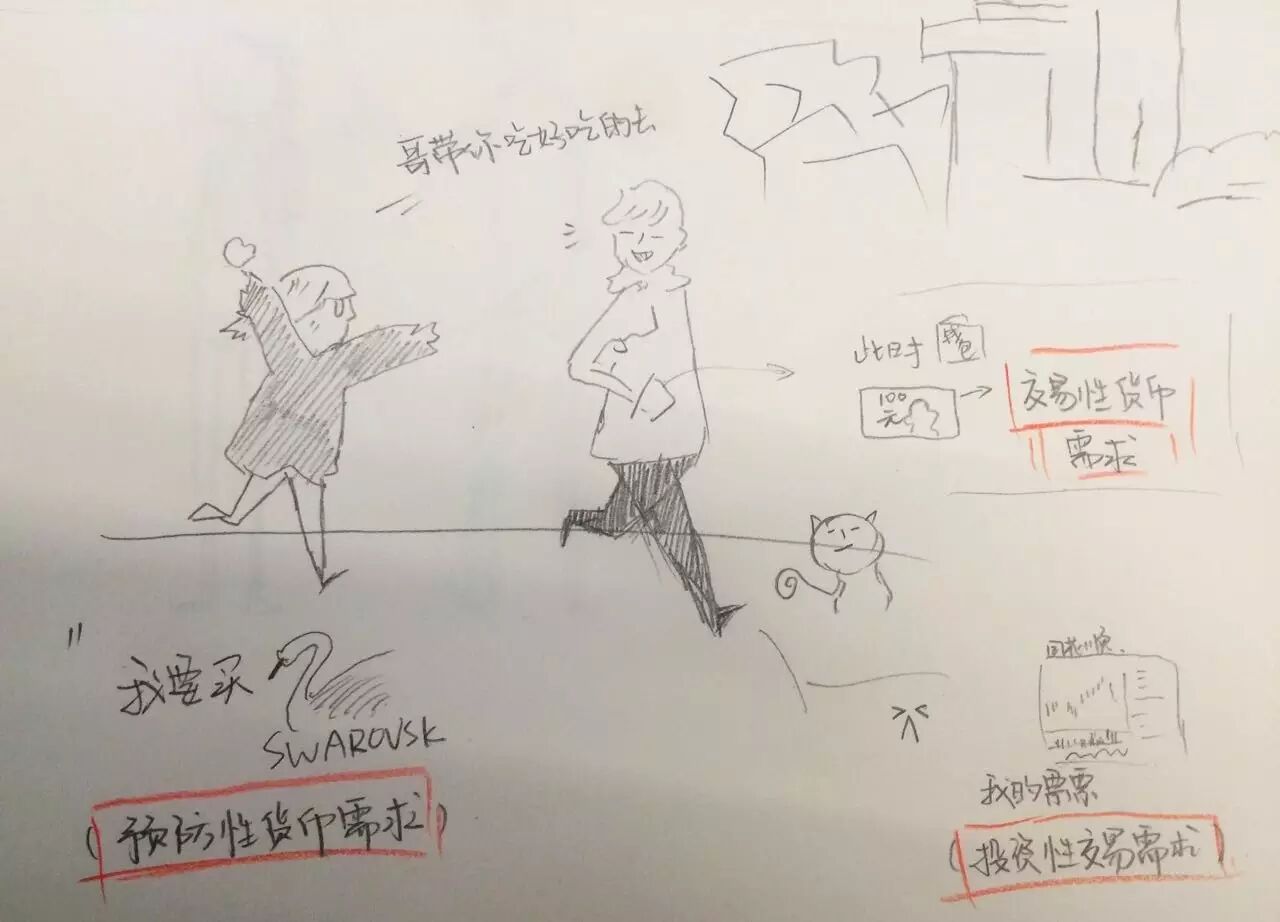 哥带你吃好吃的去
此时 钱包
100
元
交易性货币
需求
我要买
SWAROVSK
(预防性货币需求)
同花顺.
我的票票
(投资性交易需求)